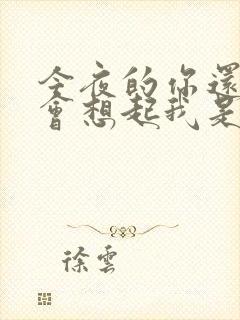 今夜的你還
會想起我是
徐雲